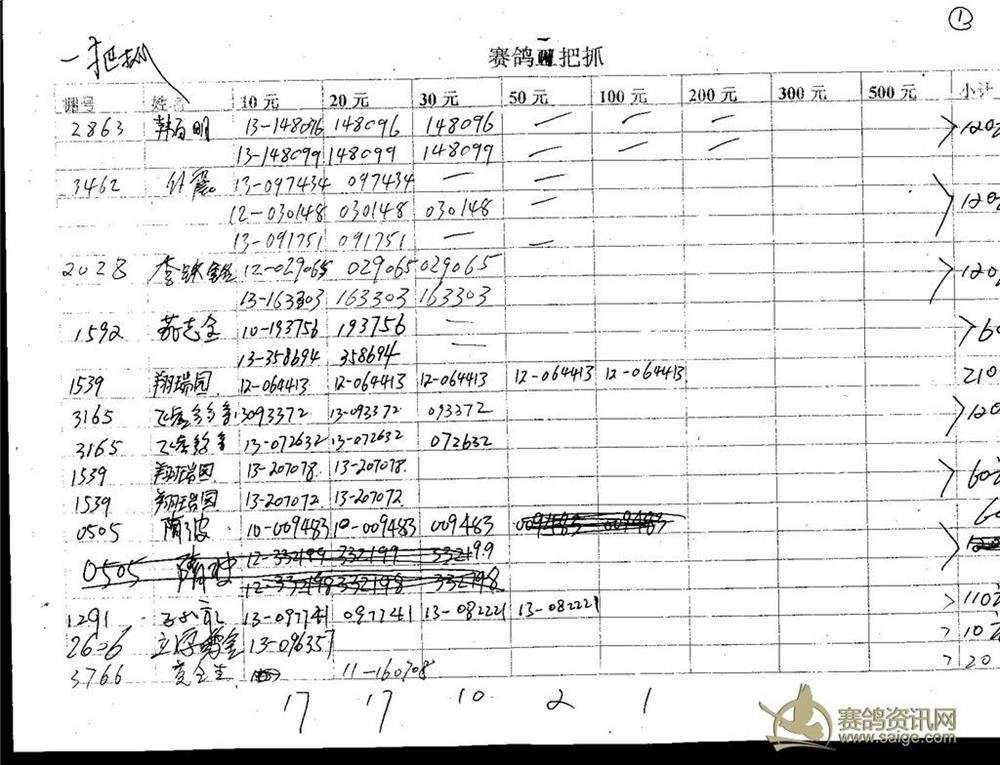 ①
一把抓
赛鸽 把抓
棚号 姓名 10元 20元 30元 50元 100元 200元 300元 500元 小计
2863 韩百明 13-148096 148096 148096 — — — >120
13-148099 148099 148099 — — —
3462 13-097434 097434 — — >120
12-030148 030148 030148 —
13-091751 091751 — —
2028 12-029065 029065 029065 >120
13-163303 163303 163303
1592 苏志全 10-193756 193756 — >60
13-358694 358694 —
1539 翔瑞园 12-064413 12-064413 12-064413 12-064413 12-064413 210
3165 13-093372 093372 >120
3165 13-072632 13-072632 072632
1539 翔瑞园 13-207078 13-207078 >60元
1539 翔瑞园 13-207072 13-207072
0505 隋波 10-009483 10-009483 009483 009483 009483
0505 隋波 12-332199 332199 332199
12-332198 332198 332198
1291 13-097741 097741 13-082221 13-082221 >110元
2626 13-096357 >10元
3766 11-160708 >20
17 17 10 2 1
赛鸽资讯网
www.saige.com